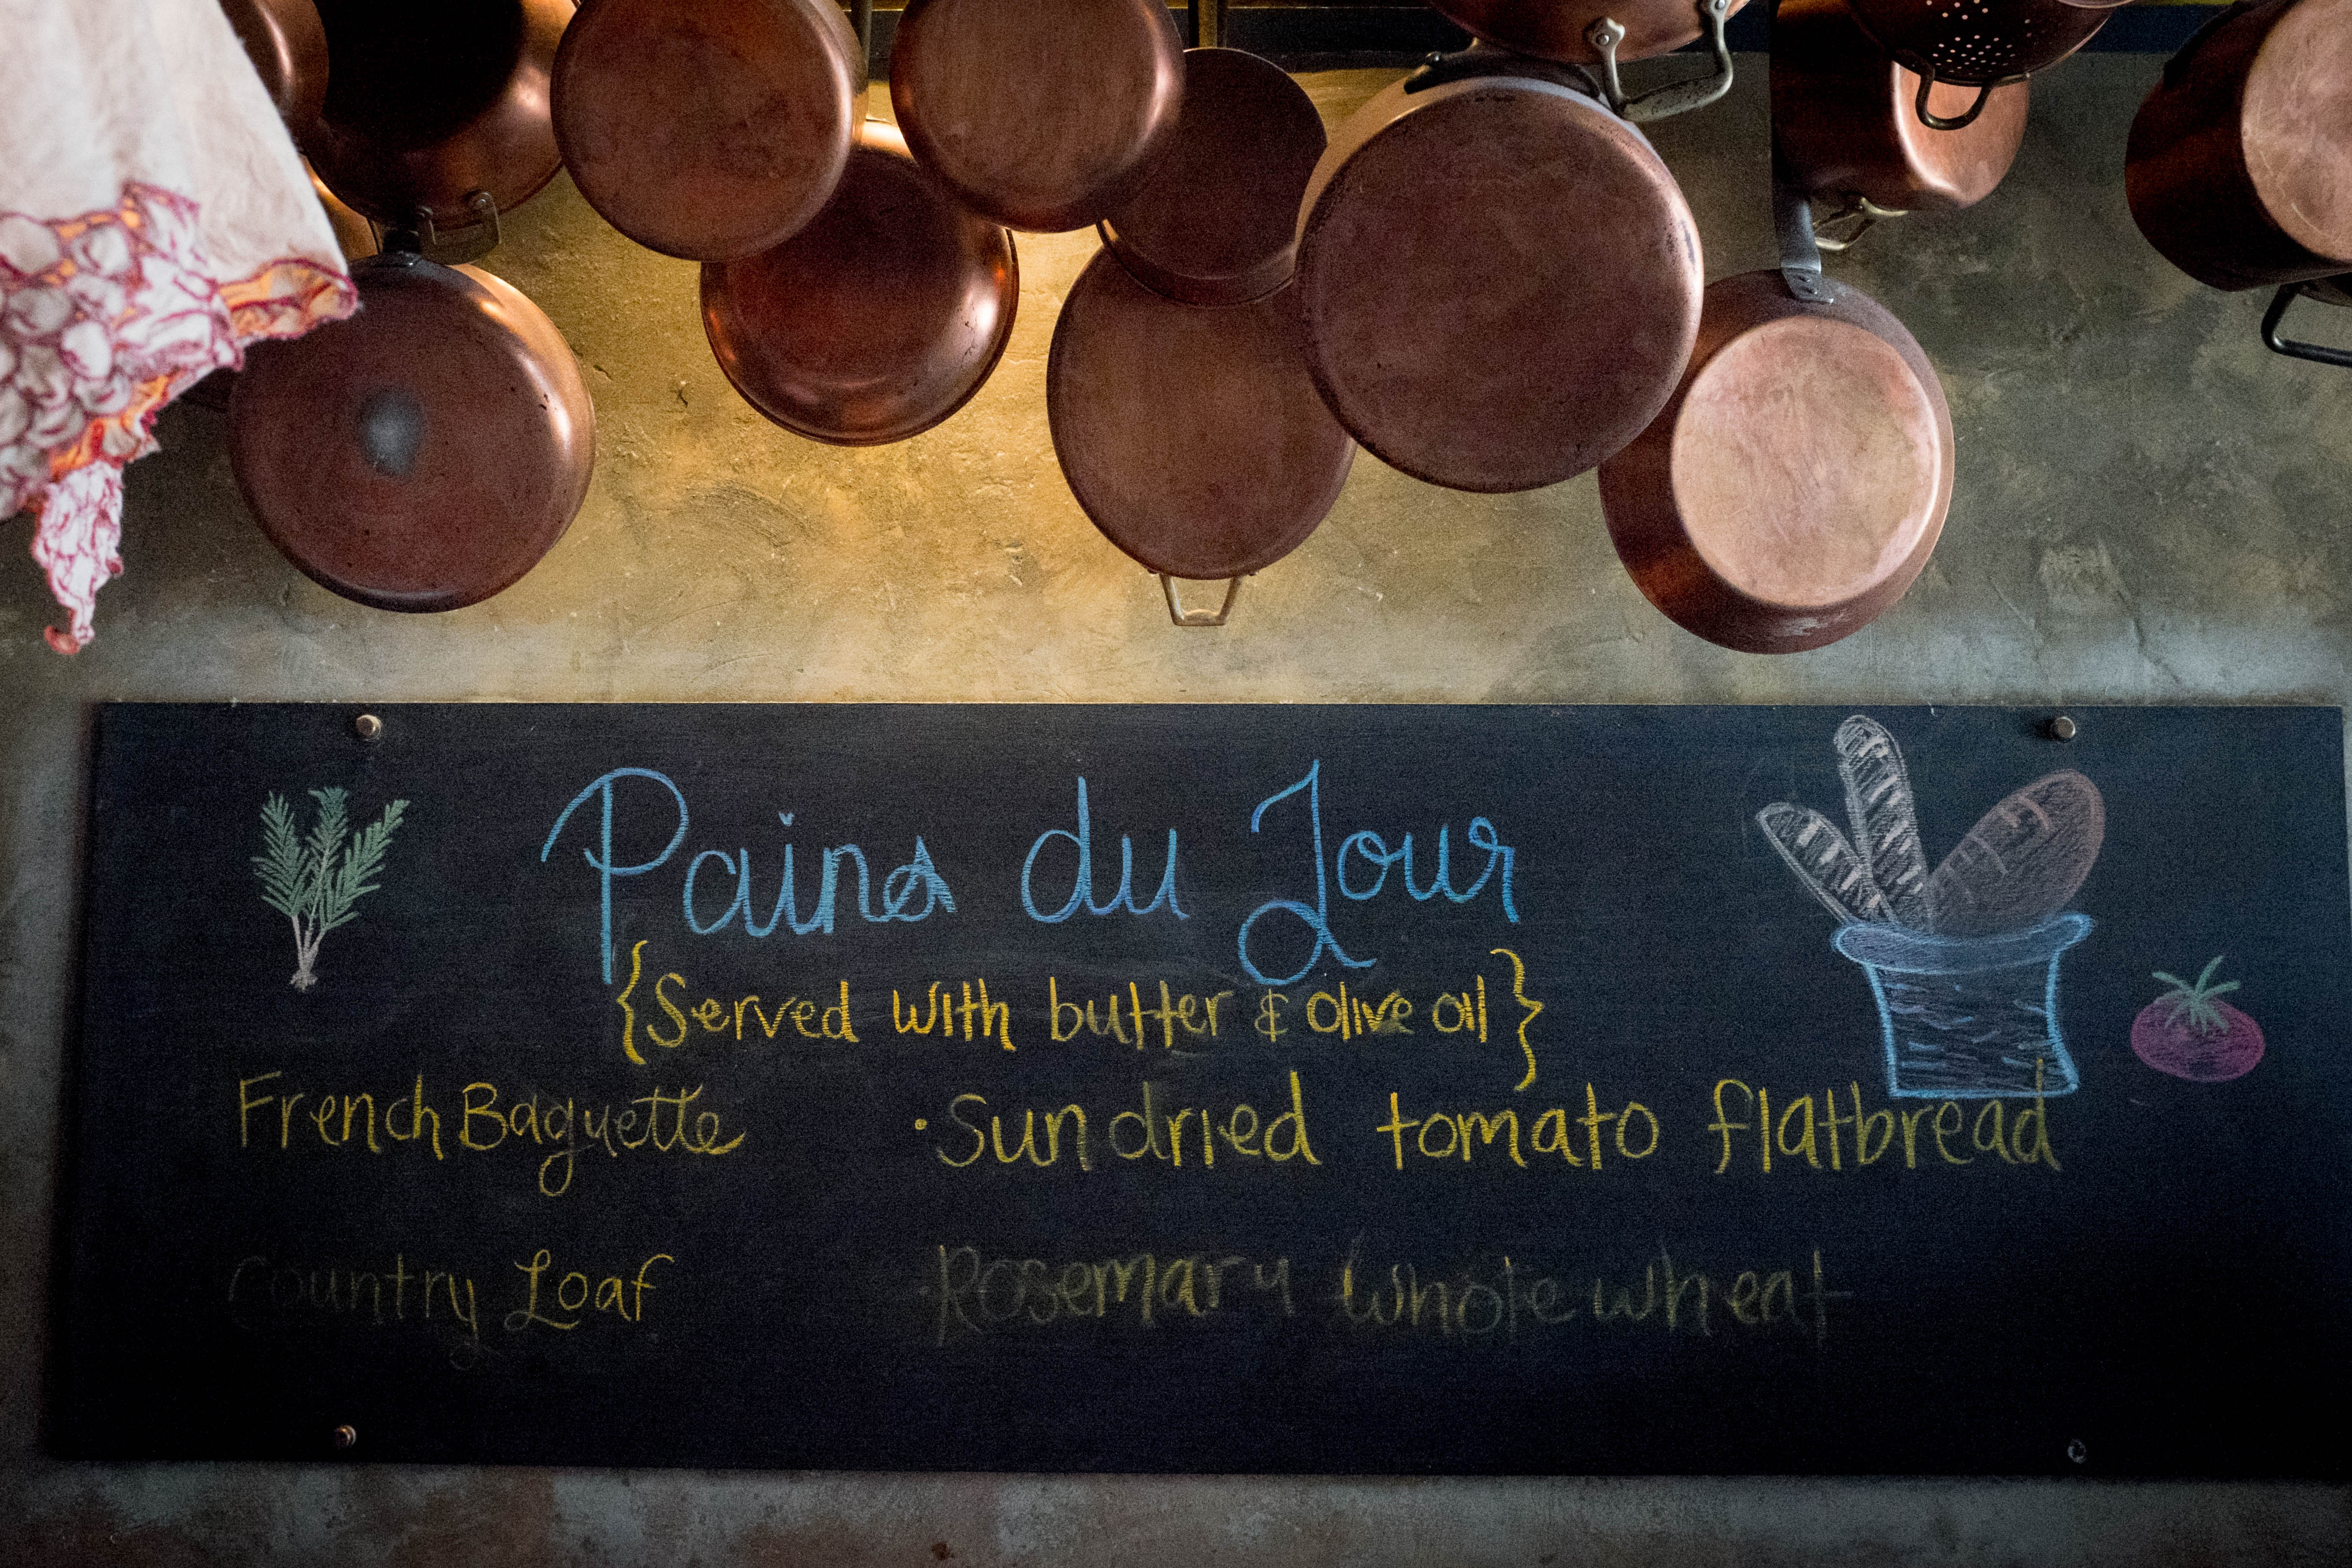 Pains du Jour
{Served with butter & olive oil}
French Baguette
·Sundried tomato flatbread
Country Loaf
·Rosemary Whole wheat